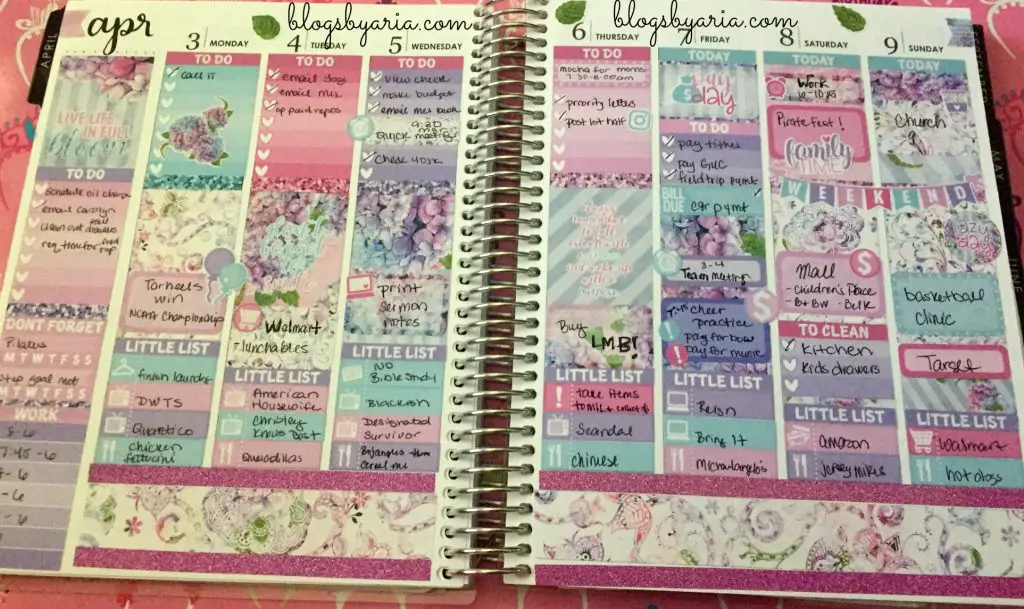 blogsbyaria.com
blogsbyaria.com
apr
APRIL
LIVE LIFE
IN FULL
bloom
TO DO
schedule oil change
email Carolyn
clean out drawers
DON'T FORGET
Pilates
M T W T F S S
step goal met
M T W T F S S
WORK
8-6
7:45-6
8-6
-6
-6
3 MONDAY
TO DO
call it
Tarheels
win
NCAA Championship
LITTLE LIST
finish laundry
DWTS
Quantico
chicken
fettucini
4 TUESDAY
TO DO
email
email
op paid
Walmart
- lunchables
LITTLE LIST
American
Housewife
Chrisley
Knows Best
Quesadillas
5 WEDNESDAY
TO DO
view check
make budget
email
9:30
Quick meeting
Check work
print
sermon
notes
LITTLE LIST
NO
Bible Study
Blackish
Designated
Survivor
Bojangles
6 THURSDAY
TO DO
mocha for moms
7:30-8:00am
priority letters
post lot half
Buy
LMB!
LITTLE LIST
take items
Scandal
chinese
7 FRIDAY
TODAY
pay
day
TO DO
pay tithes
pay GUC
field trip pymt
BILL
DUE
car pymt
3-4
Team meeting
7:45 cheer
practice
pay for bow
pay for music
LITTLE LIST
Reign
Bring It
Michaelangelo's
8 SATURDAY
TODAY
Work
6-10
Pirate Fest!
family
TIME
WEEKEND
Mall
- Children's Place
- B+BW - Belk
TO CLEAN
Kitchen
Kids drawers
LITTLE LIST
amazon
Jersey Mikes
9 SUNDAY
TODAY
Church
9
lazy
day
basketball
clinic
Target
LITTLE LIST
Walmart
hot dogs
MAY
JUNE